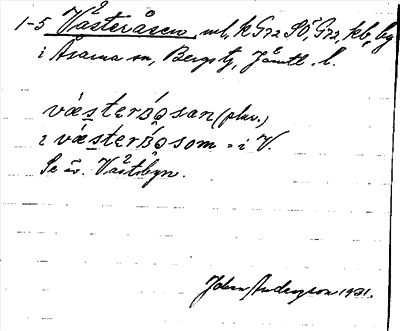 1-5 Västeråsen, ml, k G72 SÖ, G72, kb, by
i Åsarna sn, Bergs tg, Jämtl. l.
västerɷ̄san (plur.)
i västerɷ̄som = i V.
Se äv. Västbyn.
John Anderzon 1921.